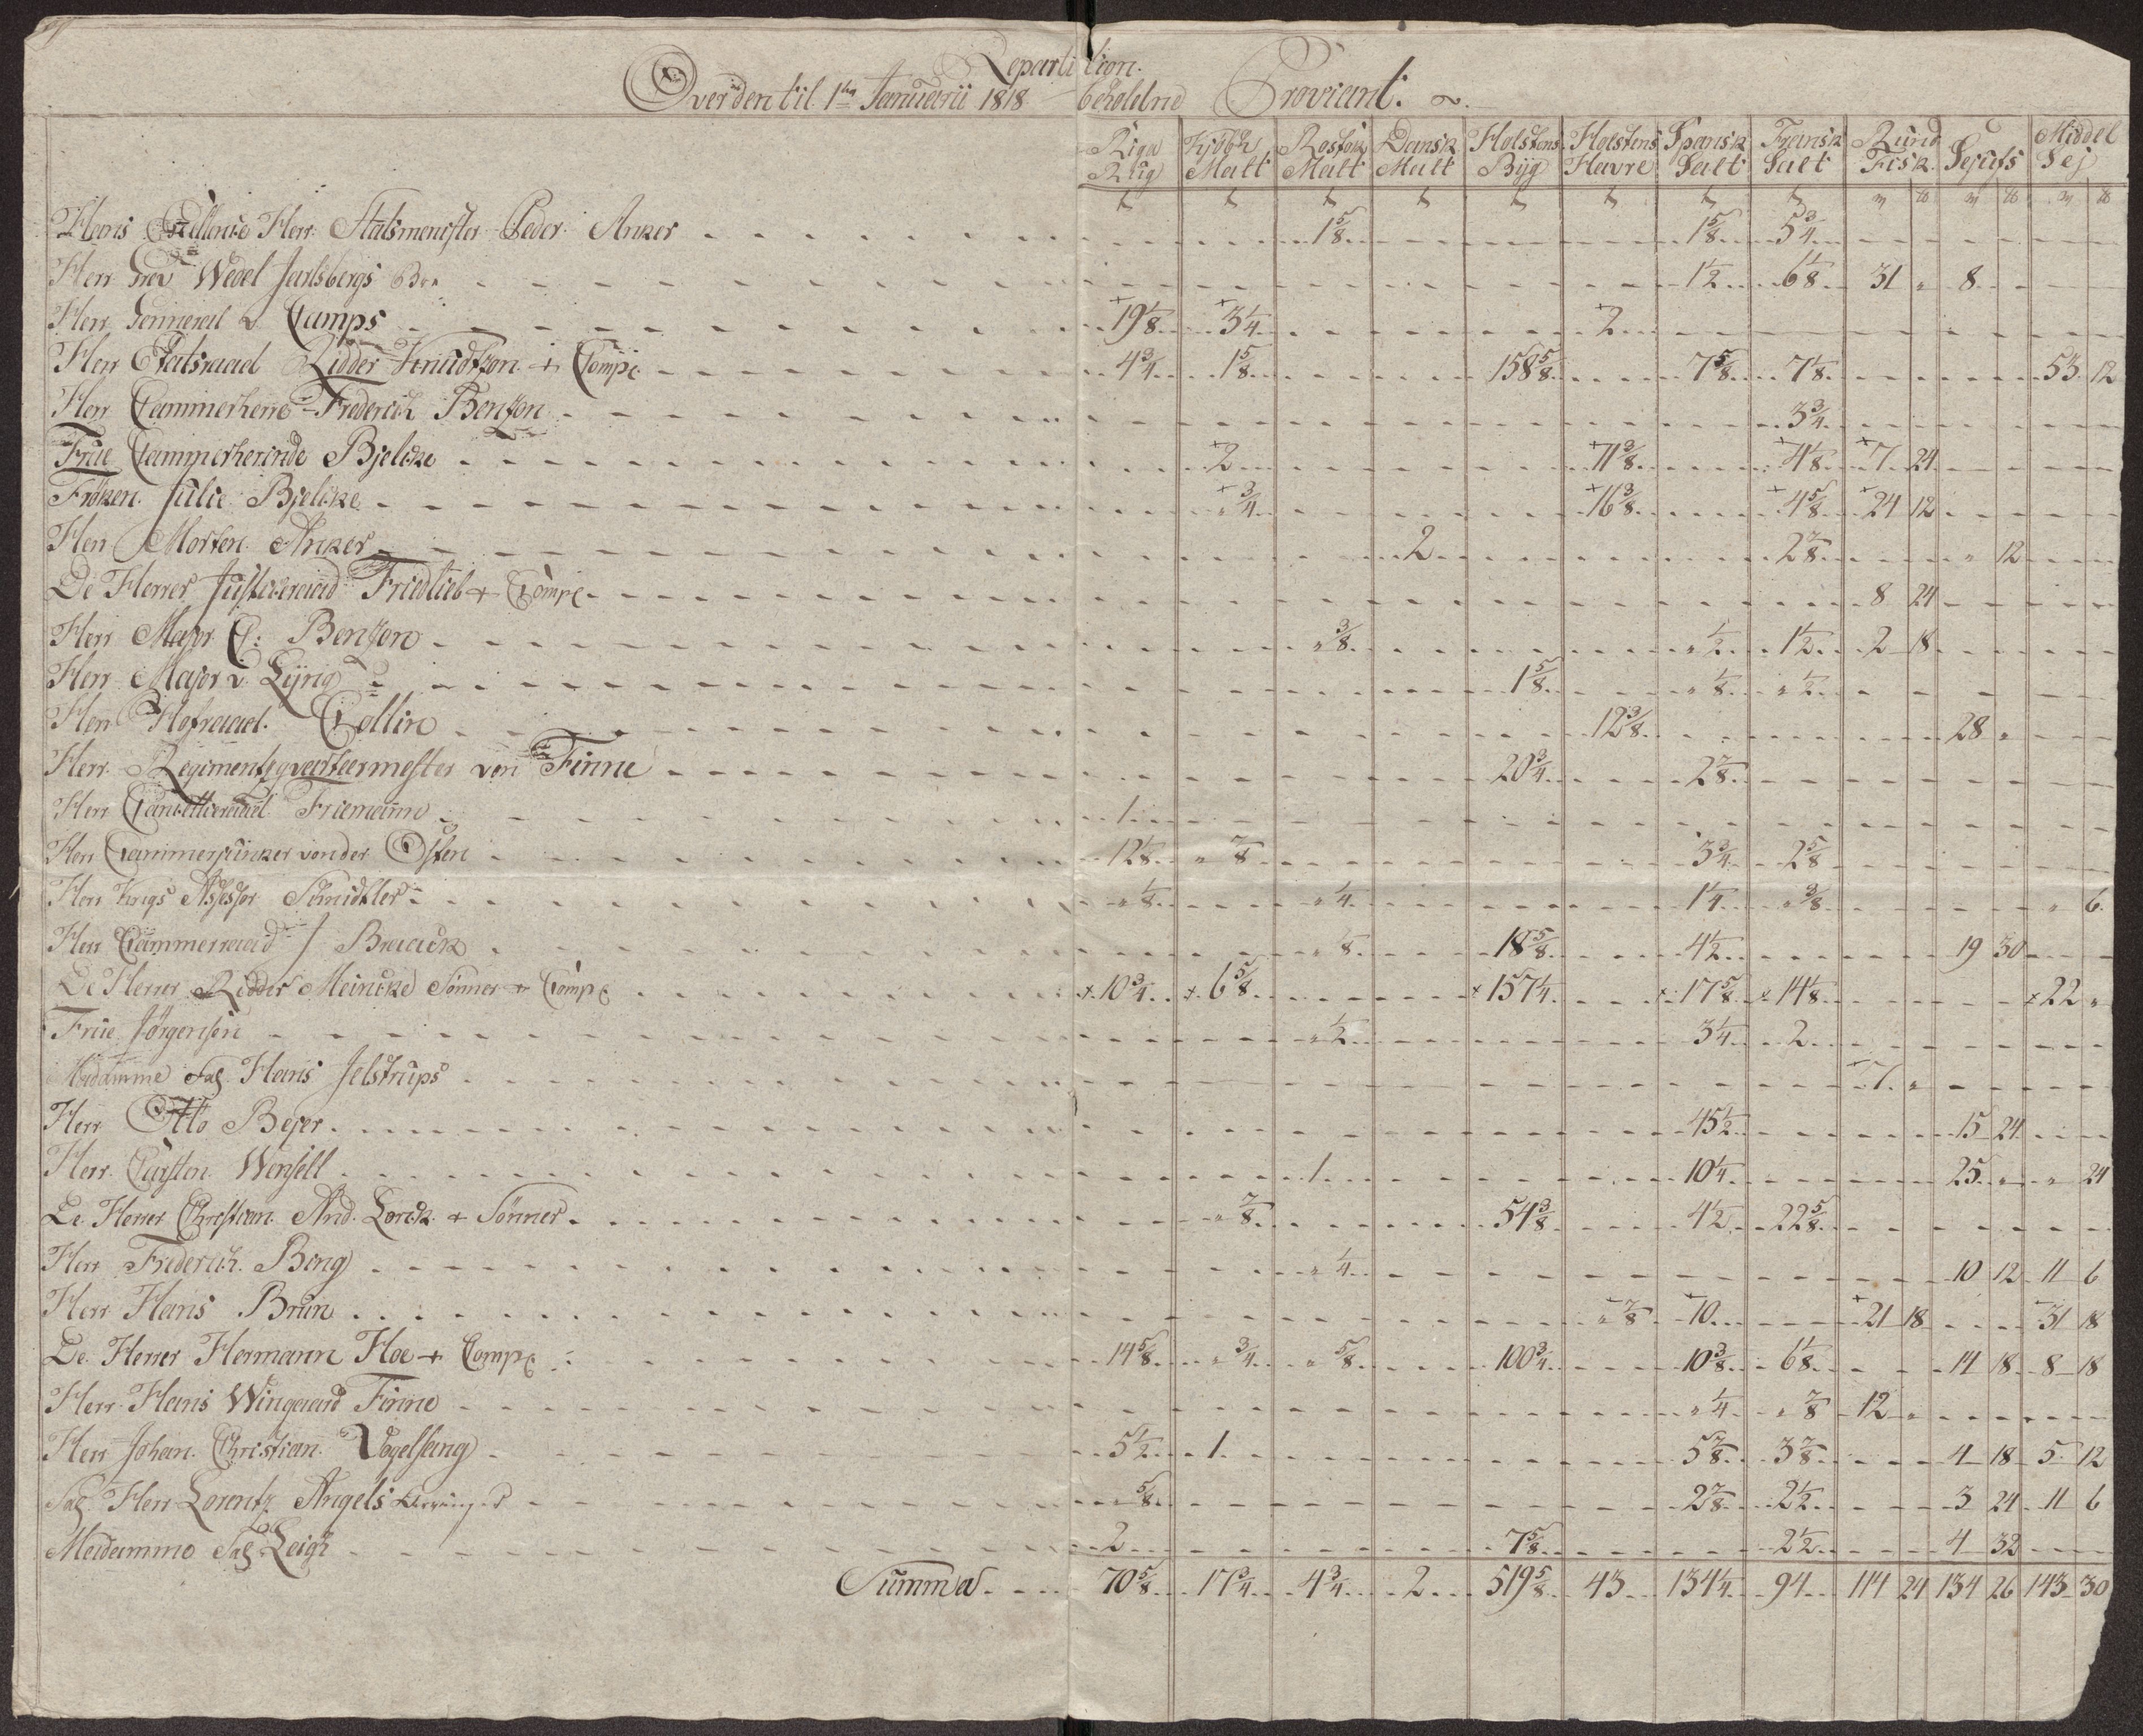 Repartition
Over den til 1ste Januarii 1818 beholdne Proviant.
Riga Rug | Kjøbh Malt | Rostok Malt | Dansk Malt | Holstens Byg | Holstens Havre | Spansk Salt | Fransk Salt | Rund Fisk | Sejufs | Middel Sej
Hans Excellence Herr Statsmenister Peder Anker 1 5/8 1 5/8 5 3/4
Herr Grev Wedel Jarlsbergs Bro 1 1/2 6 1/8 31 " 8
Herr General v Camps + 19 1/8 + 3 1/4 + 2
Herr Etatsraad Ridder Knudtzon + Compe 4 3/4 1 5/8 158 5/8 7 5/8 7 1/8 53 12
Herr Cammerherre Frederich Bentzon 3 3/4
Frue Cammerherinde Bjelcke + 2 + 11 3/8 + 4 1/8 + 7 24
Frøken Julie Bjelcke + " 3/4 + 16 3/8 + 4 5/8 + 24 12
Herr Morten Anker 2 2 7/8 " 12
De Herrer Justiceraad Friedlieb + Compe 8 24
Herr Major C: Bentzon " 3/8 " 1/2 1 1/2 2 18
Herr Major v. Lÿng 1 5/8 " 1/8 " 1/2
Herr Hofraad Collin 12 3/8 28 "
Herr Regimentsqvarteermester von Finne 20 3/4 2 7/8
Herr Cancelliereaad Friemann 1
Herr Cammerjunker von der Osten 12 1/8 " 7/8 3 3/4 2 5/8
Herr Krigs Assessor " 1/8 " 1/4 1 1/4 " 3/8 " 6
Herr Cammerraad J Braack " 1/8 18 5/8 4 1/2 19 30
De Herrer Ridder Meincke Sønner + Compe + 10 3/4 + 6 5/8 + 157 1/4 + 17 5/8 + 14 1/8 + 22 "
Frue Jørgensen " 1/2 3 1/4 2
Madamme Sal Hans Jelstrups + 7 "
Herr Otto Bejer 45 1/2 15 24
Herr Carsten Wensell 1 10 1/4 25 " " 24
De Herrer Christian And. Lorck + Sønner " 7/8 54 3/8 4 1/2 22 5/8
Herr Friderich Bing " 1/4 10 12 11 6
Herr Hans Brun + " 7/8 + 10 + 21 18 + 31 18
De Herrer Hermann Hoe + Compe 14 5/8 " 3/4 " 5/8 100 3/4 10 3/8 6 1/8 14 18 8 18
Herr Hans Wingaard Finne " 1/4 " 7/8 12 "
Herr Johan Christian Vogelsang 5 1/2 1 5 7/8 3 7/8 4 18 5 12
Sal Herr Lorentz Angels 5/8 2 7/8 2 1/2 3 24 11 6
Madamme Sal Leigh 2 7 5/8 2 1/2 4 32
Summa 70 5/8 17 3/4 4 3/4 2 519 5/8 43 134 1/4 94 114 24 134 26 143 30